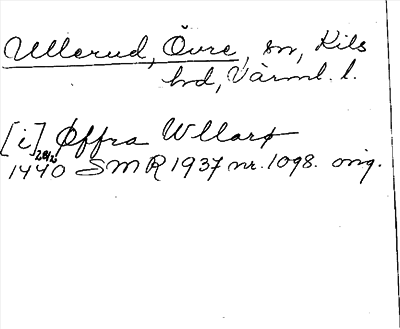 Ullerud, Övre, sn, Kils
hd, Värml. l.
[i] Øffra Wllarø
1440 28/12 SMR 1937 nr. 1098. orig.